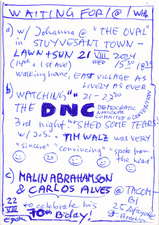 WAITING FOR/@/W/
a) w/ Johanna @ "THE OVAL"
in STUYVESANT TOWN -
LAWN + SUN 21 VIII 2024
(14th + 1st AVE) WED
walking home, EAST VILLAGE AS
LIVELY AS EVER
b) WATCHING 21 - 23:30
THE DNC DEMOCRATIC NATIONAL
COMMITTEE CONVENTION
3rd night "SHED SOME TEARS"
TIM WALZ WAS VERY
"sincere" "convincing" "spoke from
the heart"
c) MALIN ABRAHAMSON
& CARLOS ALVES @ TACOMBI
22 to celebrate his
VIII 70th B'day!